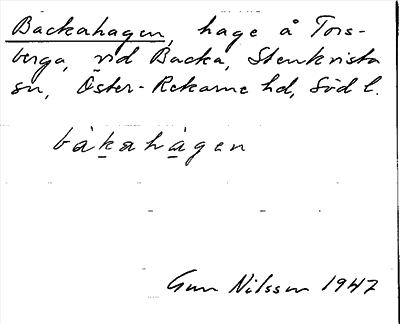 Backahagen, hage å Tors-
berga, vid Backa, Stenkvista
sn, Öster-Rekarne hd, Södl.
bàkahàgen
Gun Nilsson 1947